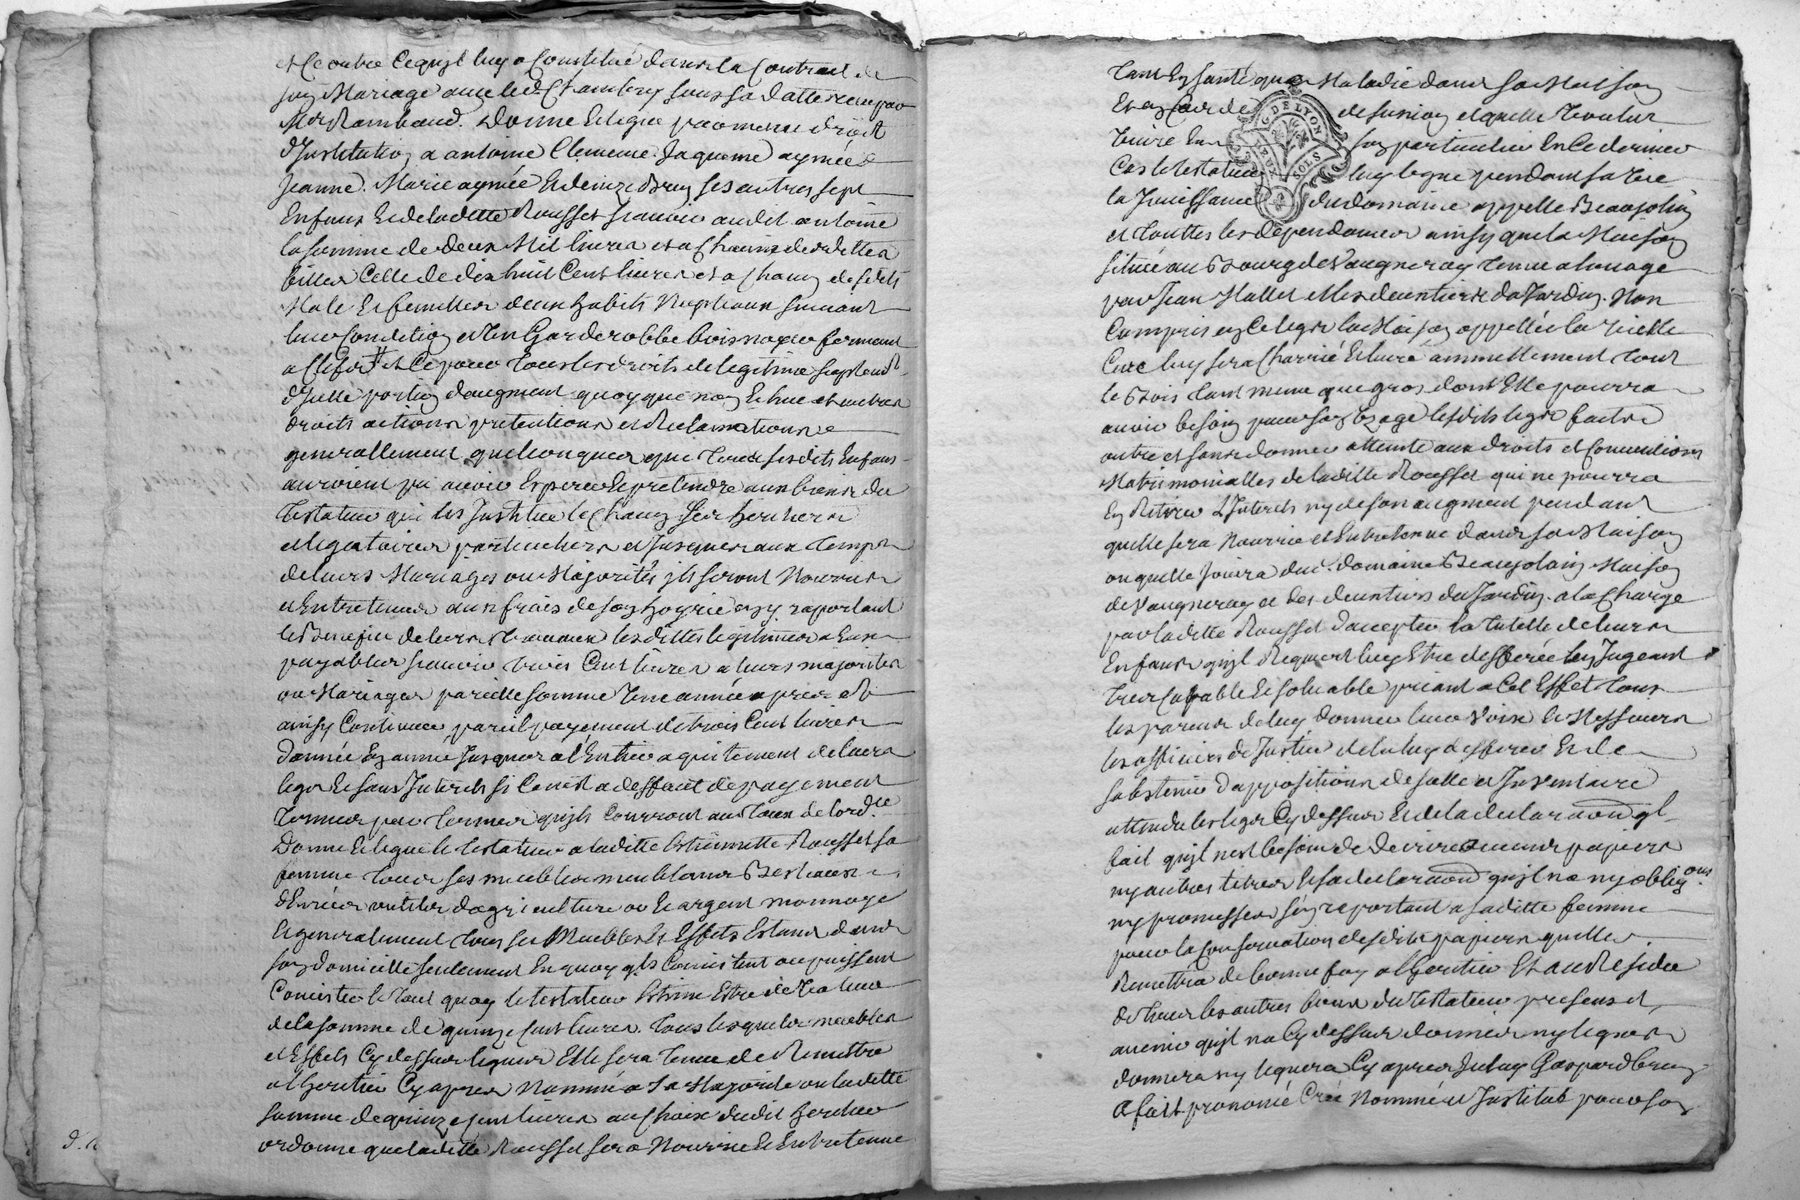 et Ce outre Ce quil luy a Constitué dans la Contract de
son Mariage avec led. Chambry sous sa datte recu par
Me Rambaud. Donne et legue par meme droit
d'Institution a antoine Clemence Jaqueme aymée
Jeanne Marie aymée et denize Bruy ses autres sept
Enfans et de ladette Rousset scavoir audit antoine
la somme de deux Mil livres et a Chacune desdittes
filles Celle de dix huit Cent livres et a Chacun desdits
Male et femelles deux habits Nuptiaux suivant
leur Condition et Un Garderobbe bois noyer fermant
a Clefs # et Ce pour tous les droits de legitime suplement
d'Icelle portion daugment quoyque non Echue et autres
droits actions pretentions et Reclamations
generallement quelconques que tous sesdits Enfans
auroient pu avoir Esperer et pretendre aux biens du
testateur qui les Institue le Chacun ses heritiers
et legataires particuliers et Jusques aux temps
de leurs Mariages ou Majorités ils seront Nourris
et Entretenus aux frais de son hoyrie en y raportant
le Benefice de leurs travaux lesdittes legitimes a Eux
payables scavoir trois Cent livres a leurs majorités
ou Mariages pareille somme Une année apres et
ainsy Continuer pareil payement de trois Cent livres
dannée En année Jusques a l'Entier aquitement de leurs
legs et sans Interets si Ce nest a deffaut de payement
termes par termes quils Courront au Taux de lord.ce
Donne et legue le testateur a laditte Estiennette Rousset sa
femme tous ses meubles meublans Bestiaux
denrées outils dagriculture or et argent monnoye
et generalement tous ses Meubles et Effets Estans dans
son domicille seulement En quoy qls Consistent ou puissent
Consister le tout quoy le testateur Estime Estre de Valeur
de la somme de quinze Cent livres. tous lesquels meubles
et Effets Cy dessus legués Elle sera tenue de Remettre
a lheritier Cy apres Nommé a Sa Majorité ou ladette
somme de quinze Cent livres au Choix dudit heritier
ordonne que laditte Rousset sera Nourrie et Entretenue
d. a
tant En Santé que Maladie dans sa Maison
Et En Cas de desunion et quelle Voulut
Vivre En son particulier En Ce dernier
Cas le testateur luy legue pendant sa Vie
la Jouissance du domaine appelle Beaujolin
et touttes les dependances ainsy que la Maison
située au Bourg de Vaugneray tenue a louage
par Jean Mallet et les deux tiers du Jardin. Non
Compris En Ce legs la Maison appellée la Vieille
Cure luy sera Charrié et livré annuellement tout
le Bois tant menu que gros dont Elle pourra
avoir besoin pour son Usage lesdits legs faits
outre et sans donner atteinte aux droits et Conventions
Matrimonialles de laditte Rousset qui ne pourra
En Retirer l'Interets ny de son augment pendant
quelle sera Nourrie et Entretenue dans sa Maison
ou quelle Jouira dud. domaine Beaujolain Maison
de Vaugneray et des deux tiers du Jardin. a la Charge
par laditte Rousset daccepter la tutelle de leurs
Enfans quil Requiert luy Estre defferée la Jugeant
tres Capable et solvable priant a Cet Effet tous
les parens de luy donner leurs Voix les Messieurs
les officiers de Justice de la luy defferer et de
sabstenir dappositions de sellé et Inventaire
attendu les legs Cy dessus et de la declaraõn ql
fait quil nest besoin de decrire aucuns papiers
ny autres titres et sa declaraõn quil na ny obligons.
ny promesses sen raportant a saditte femme
pour la Conservation desdits papiers quelle
Remettra de bonne foy a lheritier Et au Residu
de tous les autres biens du testateur presens et
avenir quil na Cy dessus donnés ny legués
donnera ny leguera Cy apres Iceluy Gaspard bruy
a fait prononcé Créé Nommé et Institué pour son
DE LYON
SOLS